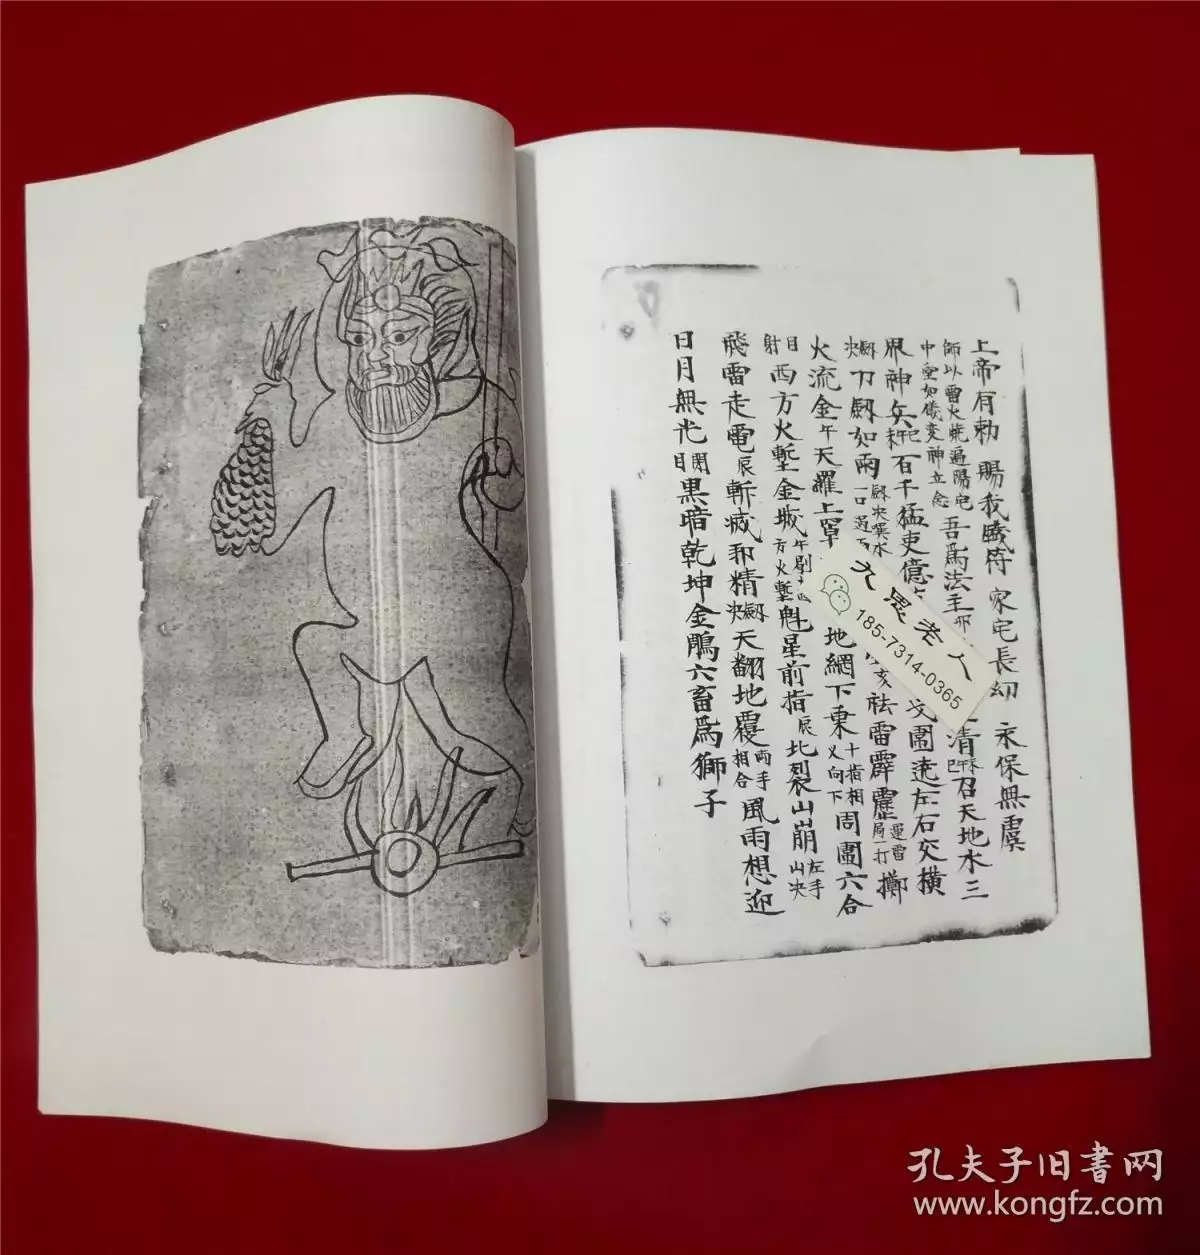 上帝有勅 賜我 符 家宅長幼 永保無虞
師以雷火燒遍陽宅 吾為法主 清 召天地水三
中堂如 變神立念
界神兵 百千猛吏億 圍遶左右交橫
刀劍如雨 祛雷霹靂 擲
火流金午天羅上罩 地網下 十指相叉向下 周圍六合
日射 西方火塹金城 魁星前指辰北裂山崩 左手山决
飛雷走電辰斬滅邪精 天翻地覆 兩手相合 風雨想迎
日月無光 閉目 黑暗乾坤金鵰六畜為獅子
九思老人
185-7314-0365
孔夫子旧書网
www.kongfz.com